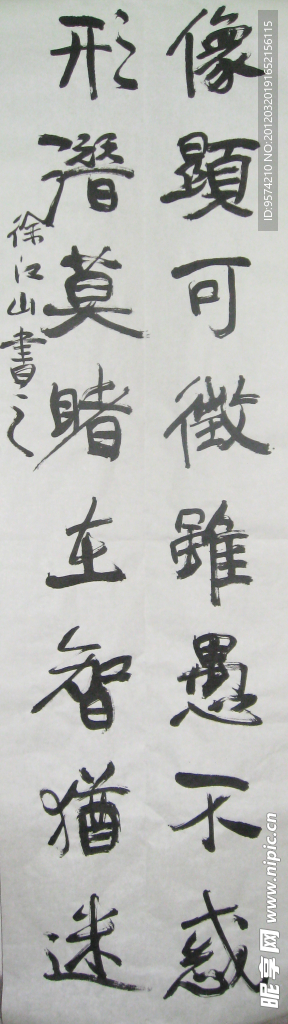 像顯可徵雖愚不惑
形潛莫睹在智猶迷
徐江山書之
ID:9574210 NO:20120320191652156115
昵享网 www.nipic.cn